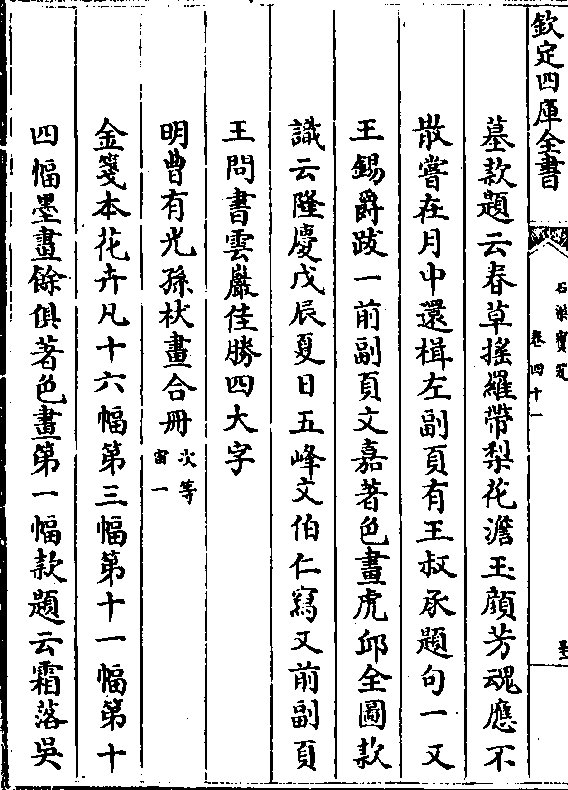 欽定四庫全書
石渠寶笈
卷四十一
墓款題云春草揺羅帶梨花澹玉顔芳魂應不
散嘗在月中還楫左副頁有王叔承題句一又
王錫爵跋一前副頁文嘉著色畫虎邱全圖款
識云隆慶戊辰夏日五峰文伯仁寫又前副頁
王問書雲巖佳勝四大字
明曹有光孫杕畫合册
次等
宙一
金箋本花卉凡十六幅第三幅第十一幅第十
四幅墨畫餘俱著色畫第一幅款題云霜落吳